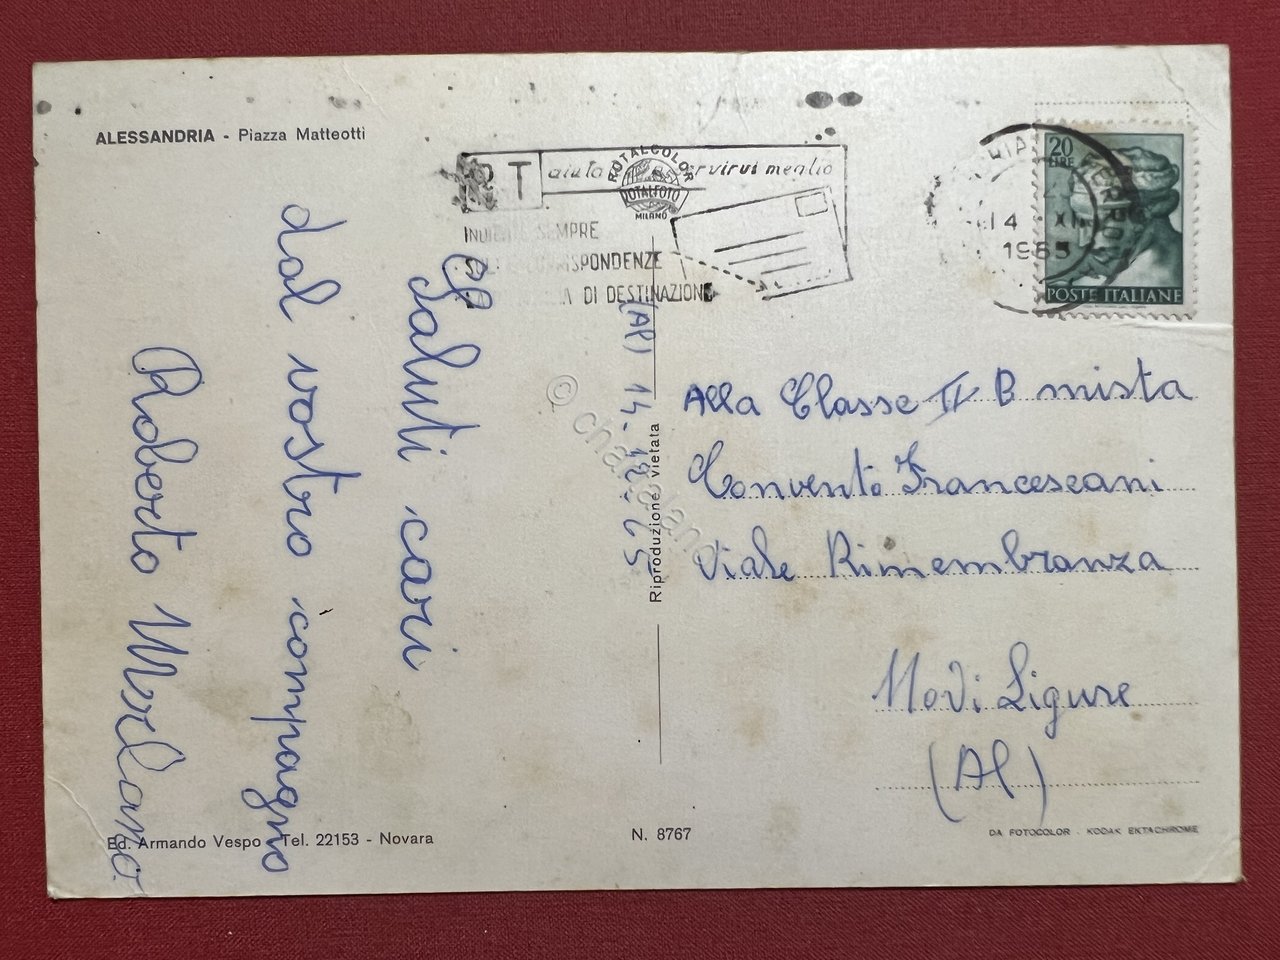 ALESSANDRIA - Piazza Matteotti
P T aiuta servirvi meglio
ROTALCOLOR
ROTALFOTO
MILANO
INDICATE SEMPRE
CORRISPONDENZE
DI DESTINAZIONE
20
LIRE
14 XII
1965
POSTE ITALIANE
(Al) 14-12-65
Saluti cari
dal vostro compagno
Roberto
Riproduzione vietata
© chartaland
Alla Classe IV B mista
Convento Francescani
Viale Rimembranza
Novi Ligure
(Al)
Ed. Armando Vespo - Tel. 22153 - Novara
N. 8767
DA FOTOCOLOR - KODAK EKTACHROME